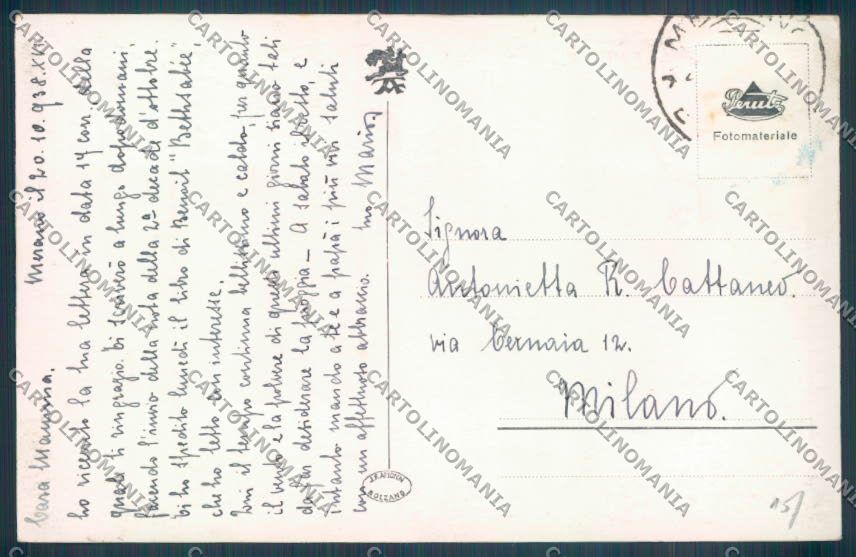 Merano il 20.10.938.XVI
Cara Mamma,
ho ricevuto la tua lettera in data 17 corr. della
quale ti ringrazio. Ti scriverò a lungo dopodomani,
facendo l'invio della nota della 2ª decade d'ottobre.
Ti ho spedito lunedì il libro di Benoit "Bethsabée",
che ho letto con interesse.
Qui il tempo continua bellissimo e caldo, per quanto
il vento e la polvere di questi ultimi giorni siano tali
da far desiderare la pioggia - A sabato dunque, e
intanto mando a te e a papà i più vivi saluti
con un affettuoso abbraccio. tuo Mario
Perutz
Fotomateriale
Signora
Antonietta R. Cattaneo.
via Cernaia 12.
Milano.
BOLZANO
15/
CARTOLINOMANIA